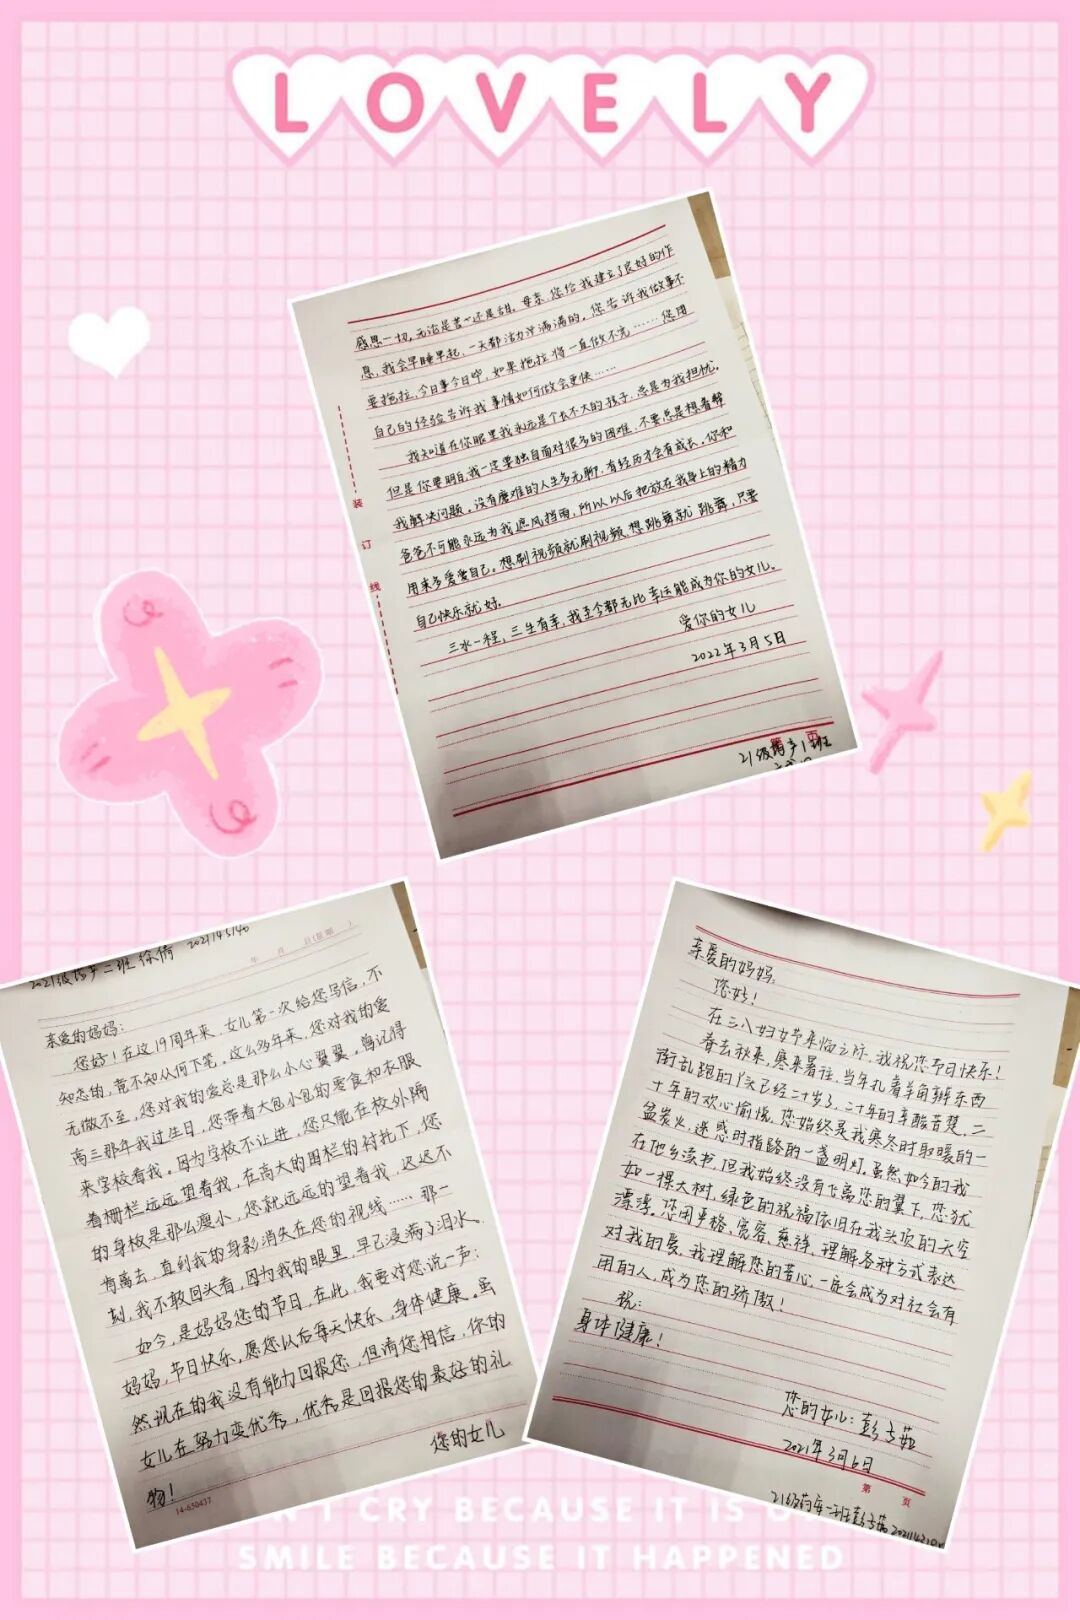 LOVELY
感恩一切,无论是苦还是甜。母亲,您给我建立了良好的作
息,我会早睡早起,一天都活力满满的。您告诉我做事不
要拖拉,今日事今日毕,如果拖拉将一直做不完……您用
自己的经验告诉我事情如何做会更快……
我知道在你眼里我永远是个长不大的孩子,总是为我担忧。
但是你要明白,我一定要独自面对很多的困难,不要总是想着帮
我解决问题。没有磨难的人生多无聊,有经历才会有成长。你和
爸爸不可能永远为我遮风挡雨,所以以后把放在我身上的精力
用来多爱爱自己。想刷视频就刷视频,想跳舞就跳舞,只要
自己快乐就好。
三水一程,三生有幸,我至今都无比幸运能成为你的女儿。
爱你的女儿
2022年3月5日
装
订
线
页
21级 1班
2021级 二班 徐倩
年 月 日(星期 )
亲爱的妈妈:
您好!在这19周年来,女儿第一次给您写信,不
知怎的,竟不知从何下笔。这么多年来,您对我的爱
无微不至,您对我的爱总是那么小心翼翼。曾记得
高三那年我过生日,您带着大包小包的零食和衣服
来学校看我。因为学校不让进,您只能在校外隔
着栅栏远远望着我,在高大的围栏的衬托下,您
的身板是那么瘦小,您就远远的望着我,迟迟不
肯离去,直到我的身影消失在您的视线……那一
刻,我不敢回头看,因为我的眼里,早已浸满了泪水。
如今,是妈妈您的节日,在此,我要对您说一声:
妈妈,节日快乐,愿您以后每天快乐,身体健康。虽
然现在的我没有能力回报您,但请您相信,你的
女儿在努力变优秀,优秀是回报您的最好的礼
物!
您的女儿
14-650437
亲爱的妈妈,
您好!
在三八妇女节来临之际,我祝您节日快乐!
春去秋来,寒来暑往,当年扎着羊角辫东西
街乱跑的丫头已经二十岁了,二十年的辛酸苦楚,二
十年的欢心愉悦,您始终是我寒冬时取暖的一
盆炭火,迷惑时指路的一盏明灯。虽然如今的我
在他乡读书,但我始终没有飞离您的翼下,您犹
如一棵大树,绿色的祝福依旧在我头顶的天空
漂漾。您用严格,宽容,慈祥,理解各种方式表达
对我的爱,我理解您的苦心,一定会成为对社会有
用的人,成为您的骄傲!
祝:
身体健康!
您的女儿:彭
2021年3月6日
第 页
21级药 一班彭
CRY BECAUSE IT IS
SMILE BECAUSE IT HAPPENED